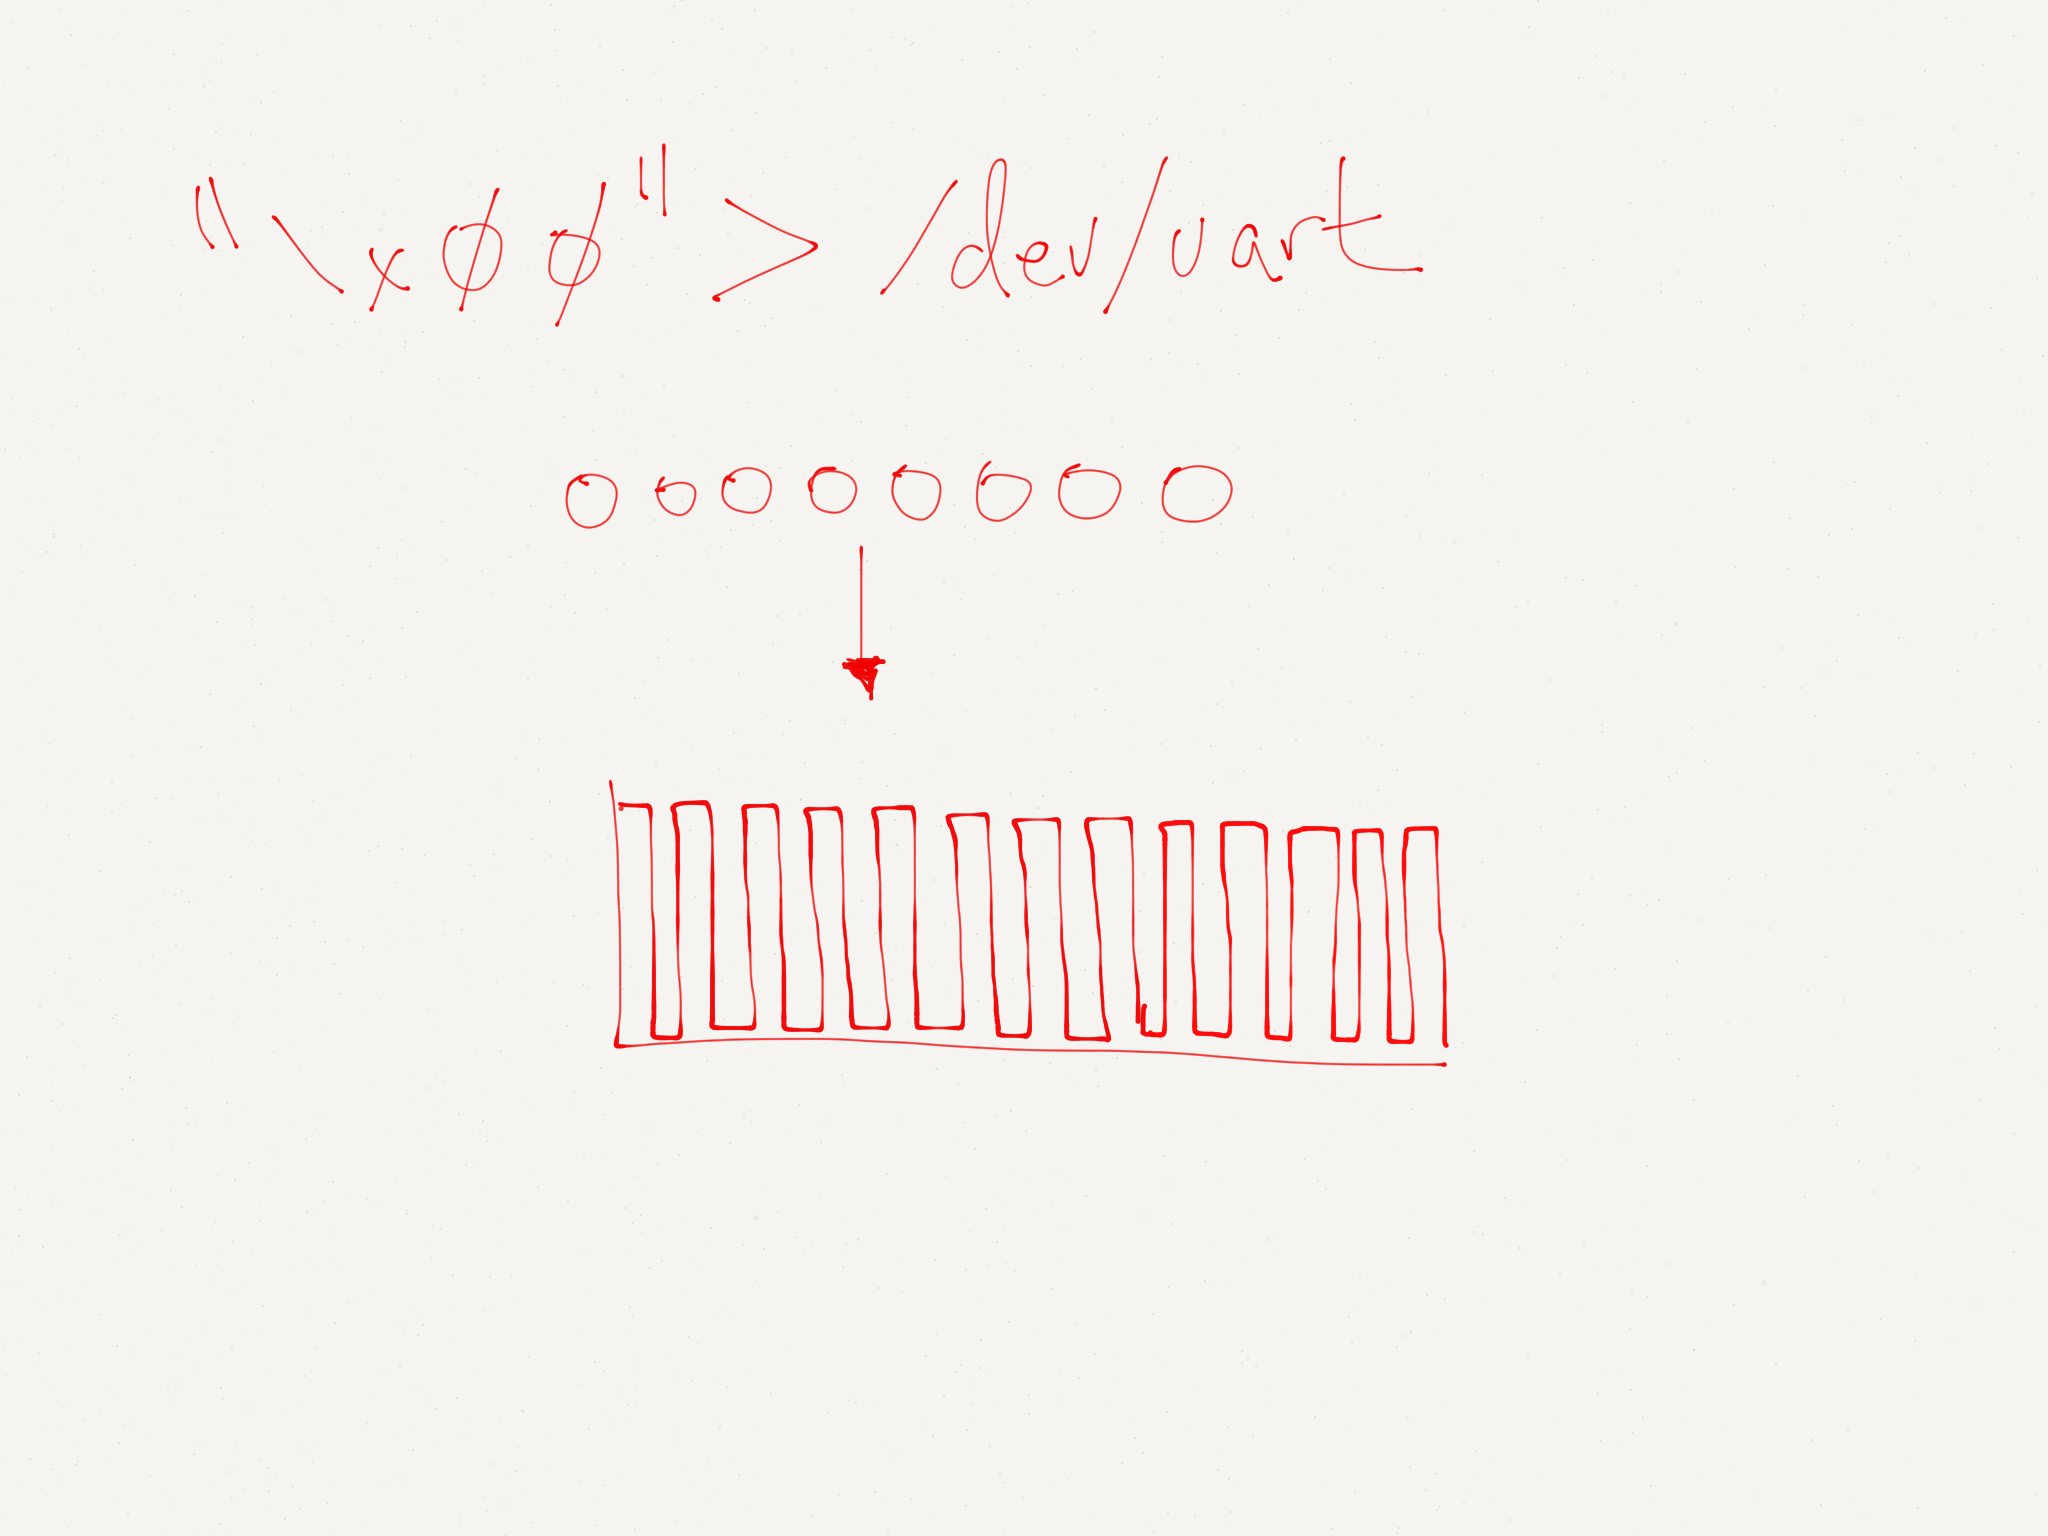 "\x00" > /dev/uart
0 0 0 0 0 0 0 0